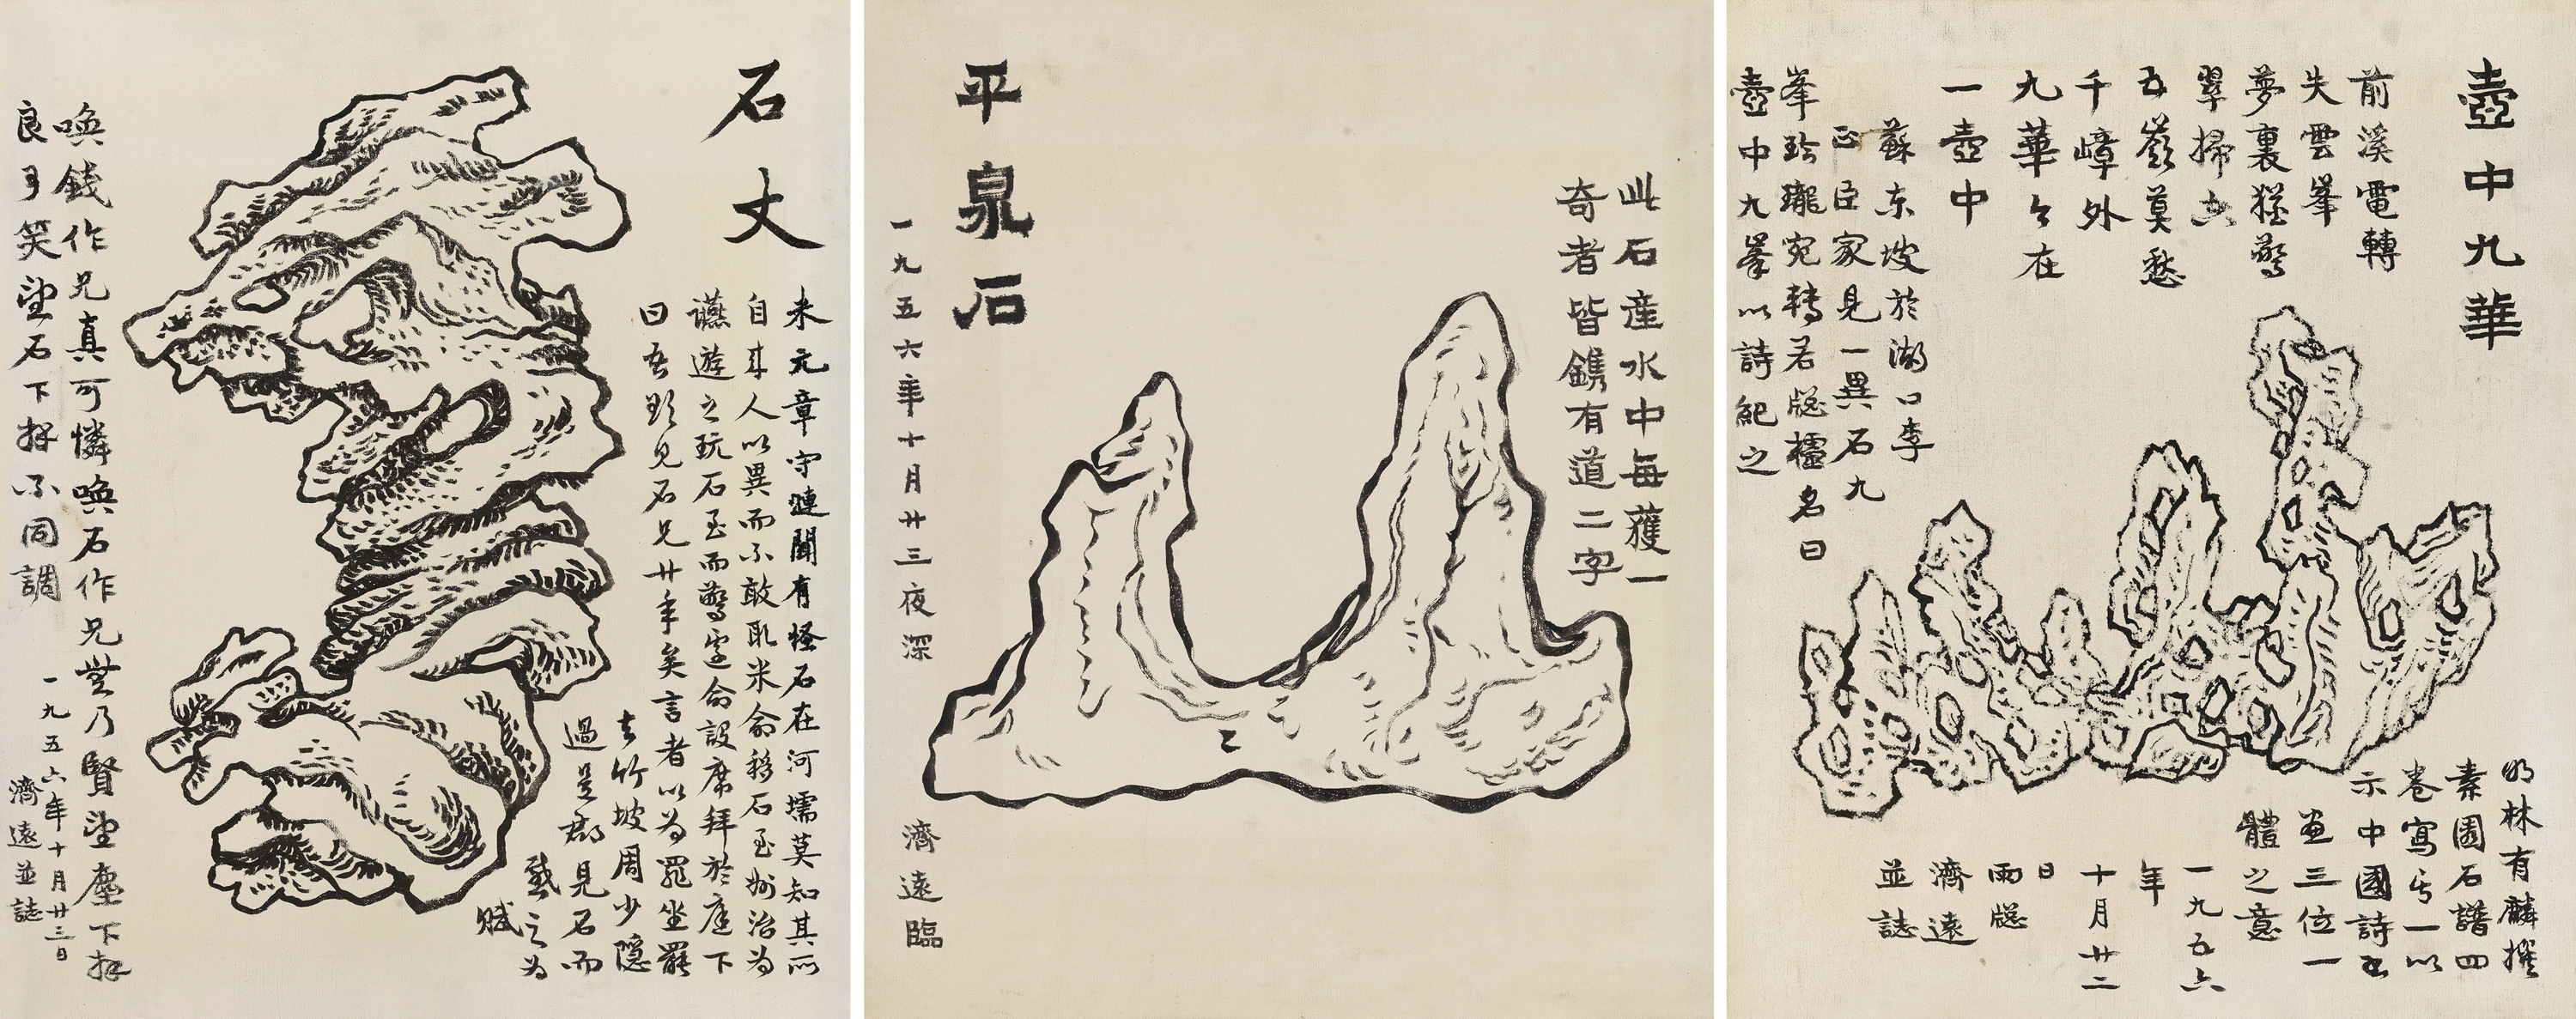 石丈
米元章守漣聞有怪石在河壖莫知其所
自來人以異而不敢取米命移石至州治為
讌遊之玩石至而驚遽命設席拜於庭下
曰吾欲見石兄廿年矣言者以為罪坐罷
去竹坡周少隱
過是郡見石而
感之為
賦
喚錢作兄真可憐喚石作兄無乃賢望塵下拜
良可笑望石下拜不同調
一九五六年十月廿三日
濟遠並誌
此石產水中每獲一
奇者皆鐫有道二字
平泉石
一九五六年十月廿三夜深
濟遠臨
壺中九華
前溪電轉
失雲峯
夢裏猶驚
翠掃空
五嶺莫愁
千嶂外
九華今在
一壺中
蘇東坡於湖口李
正臣家見一異石九
峯玲瓏宛轉若窗櫺名曰
壺中九峯以詩紀之
明林有麟撰
素園石譜四
卷寫其一以
示中國詩書
畫三位一
體之意
一九五六
年
十月廿二
日
雨窗
濟遠
並誌